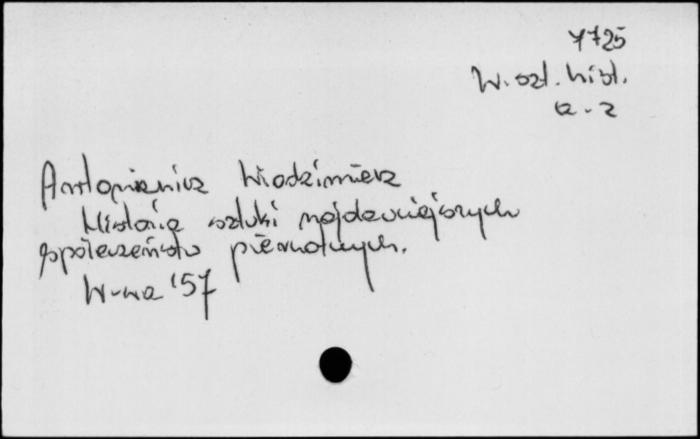 7725
W. szt. hist.
a - z
Antoniewicz Włodzimierz
Historia sztuki najdawniejszych
społeczeństw pierwotnych.
W-wa '57